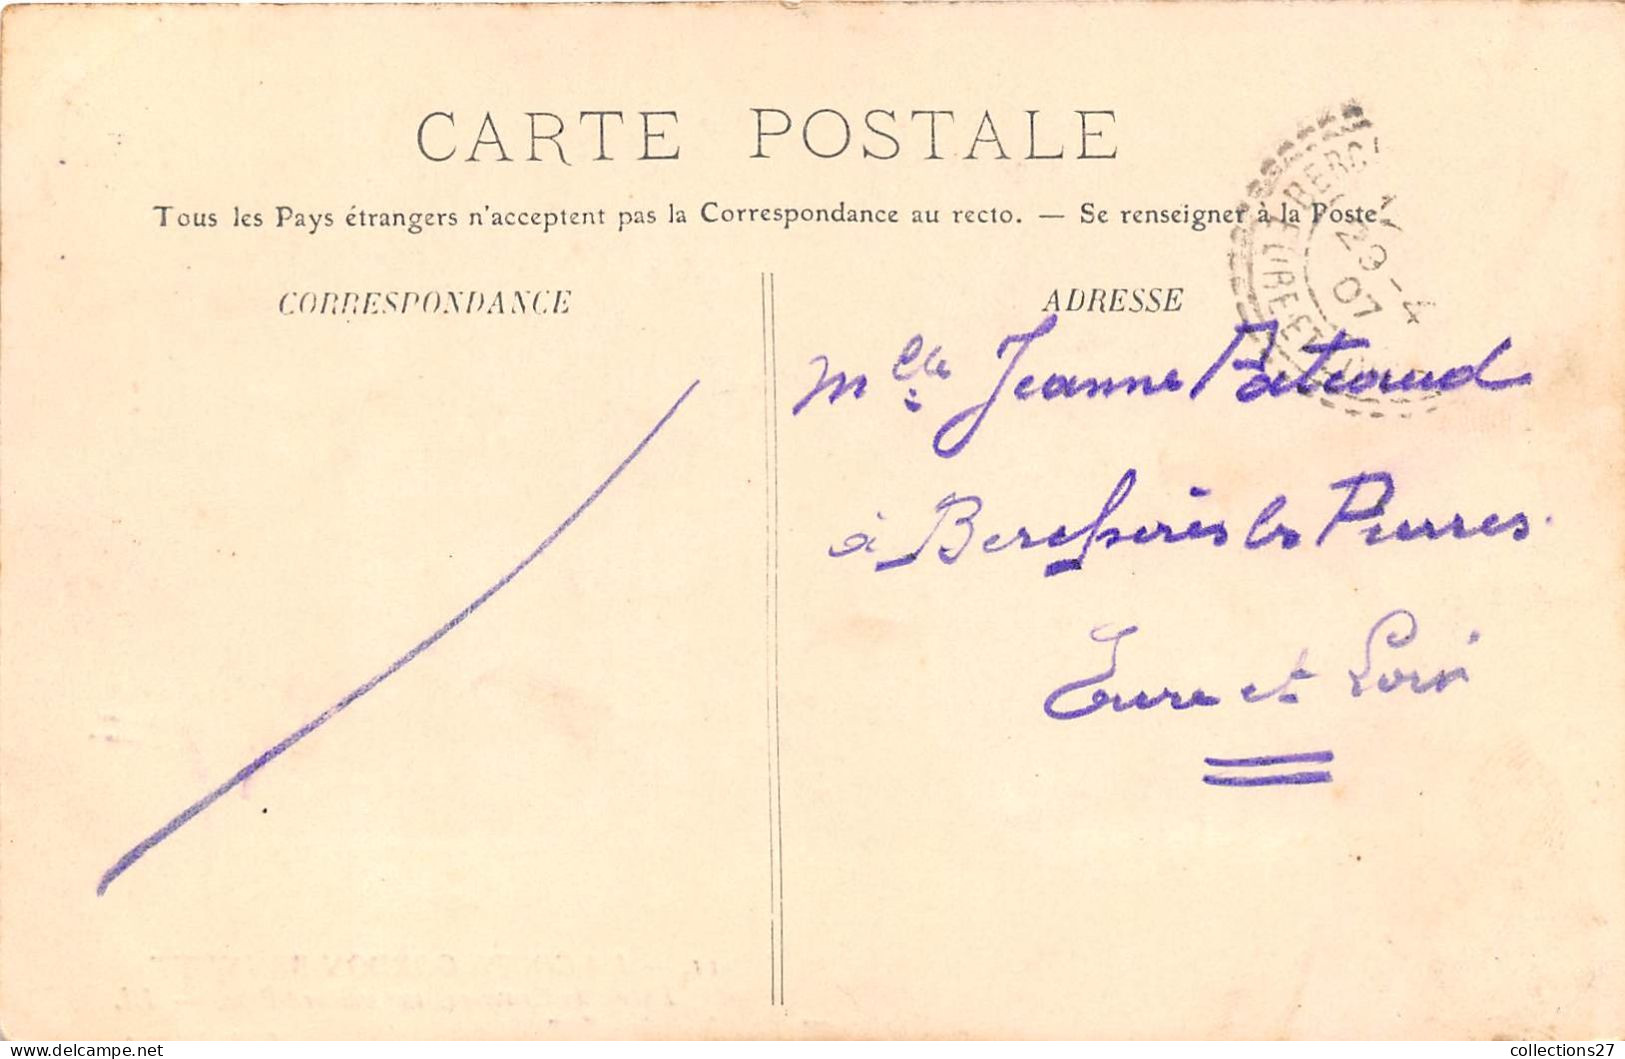 CARTE POSTALE
Tous les Pays étrangers n'acceptent pas la Correspondance au recto. — Se renseigner à la Poste
CORRESPONDANCE
ADRESSE
BERC
29-4
07
EURE-ET
Mlle Jeanne
à Berchères les Pierres.
Eure et Loir
collections27